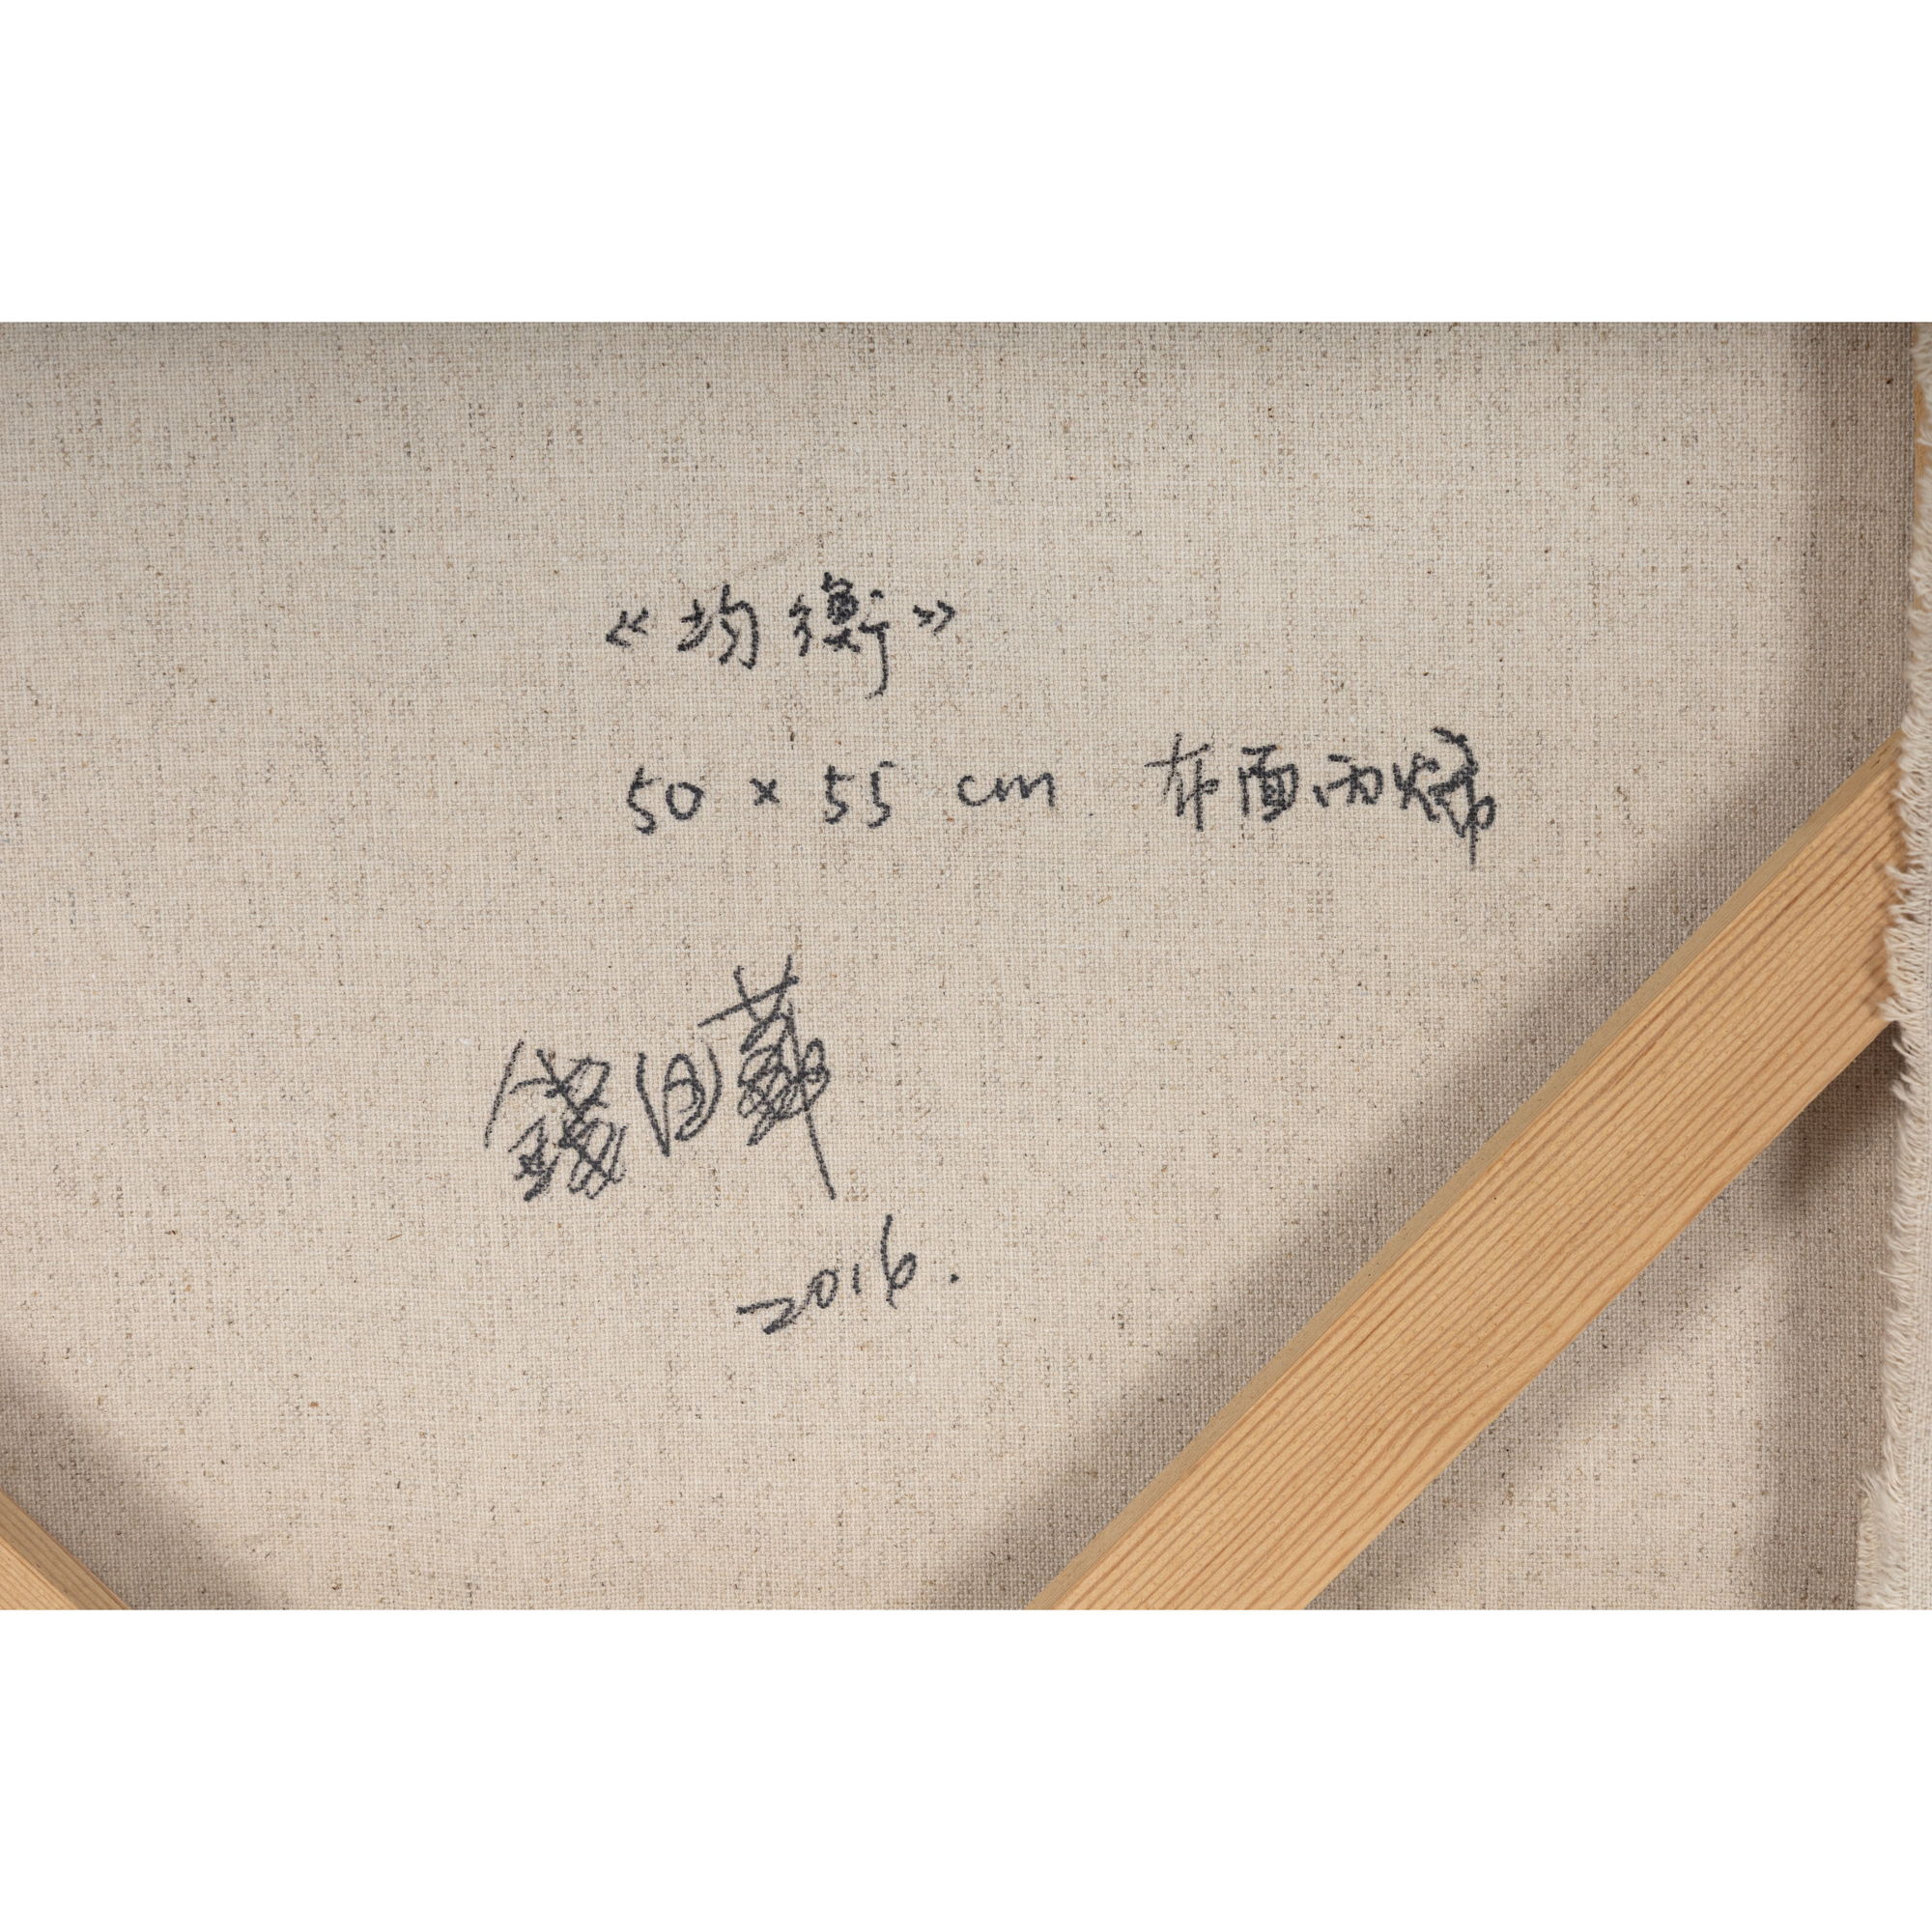 《均衡》
50 × 55 cm 布面丙烯
錢
2016.